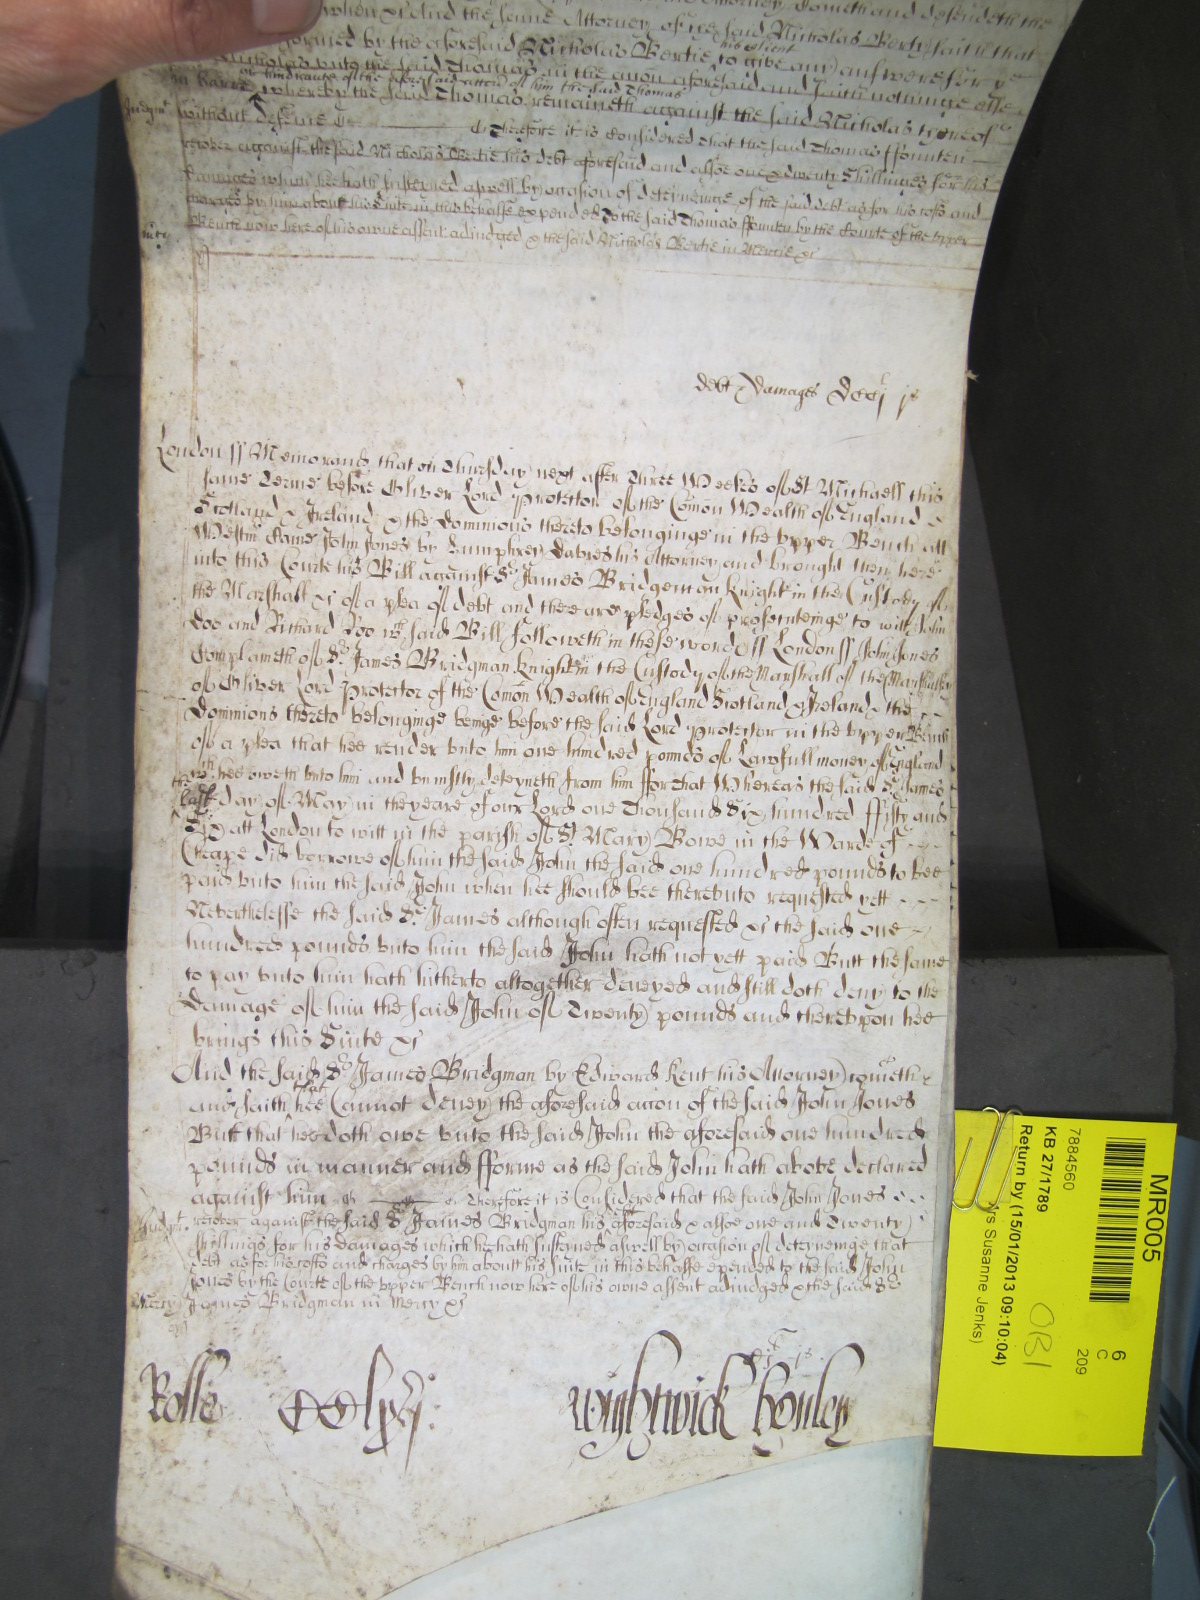 when &c And the same Attorney of the said Nicholas Berty saith that
formed by the aforesaid Nicholas Bertie his client to give any answere for ye
Nicholas vnto the said Thomas in the accon aforesaid and saith nothinge else
in barre whereby the said Thomas remaineth against the said Nicholas
Judgmt without defence &c Therefore it is Considered that the said Thomas ffounten
recover against the said Nicholas Bertie his debt aforesaid and alsoe one & twenty shillinges for his
damages which hee hath susteyned aswell by occasion of deteyneinge of the said debt as for his costs and
charges by him about his suite in this behalfe expended to the said Thomas ffounten by the Courte of the vpper
Bench now here of his owne assent adiudged & the said Nicholas Bertie in Mercie &c
debt & damages
London ss Memorand that on Thursday next after Three Weekes of St Michaell this
same Terme before Oliver Lord Protector of the Comon Wealth of England
Scotland & Ireland & the dominions thereto belonginge in the vpper Bench att
Westm Came John Jones by Humphrey Davies his Attorney and brought then here
into this Courte his Bill against Sr James Bridgeman Knight in the Custody of
the Marshall &c of a plea of debt and there are pledges of prosecuteinge to witt John
Doo and Richard Roo wch said Bill followeth in these words ss London ss John Jones
Complaineth of Sr James Bridgman Knight in the Custody of the Marshall of the Marshalsey
of Oliver Lord Protector of the Comon Wealth of England Scotland & Ireland & the
Dominions thereto belonginge beinge before the said Lord Protector in the vpper Bench
of a plea that hee render vnto him one hundred pounds of Lawfull money of England
wch hee oweth vnto him and vniustly deteyneth from him ffor that Whereas the said Sr James
the last day of May in the yeare of our Lord one Thousand Six hundred ffifty and
Six att London to witt in the parish of St Mary Bowe in the Warde of
Cheape did borrowe of him the said John the said one hundred pounds to bee
paid vnto him the said John when hee should bee therevnto requested yett
Neverthelesse the said Sr James although often requested &c the said one
hundred pounds vnto him the said John hath not yett paid Butt the same
to pay vnto him hath hitherto altogether denyed and still doth deny to the
damage of him the said John of Twenty pounds and therevpon hee
brings this Suite &c
And the said Sr James Bridgman by Edward Kent his Attorney cometh
and saith that hee Cannot deney the aforesaid accon of the said John Jones
Butt that hee doth owe vnto the said John the aforesaid one hundred
pounds in manner and fforme as the said John hath above declared
against him &c Therefore it is Considered that the said John Jones
Judgmt recover against the said Sr James Bridgman his debt aforesaid & alsoe one and Twenty
shillings for his damages which hee hath susteined aswell by occasion of deteyneinge that
debt as for his costs and charges by him aboutt his suite in this behalfe expended to the said John
Jones by the Courte of the vpper Bench now here of his owne assent adiudged & the said Sr
Mercy James Bridgman in Mercy &c
Rolls
Wightwick Honley
MR005
6
C
209
7884560
KB 27/1789
Return by (15/01/2013 09:10:04)
rs Susanne Jenks)
OB1